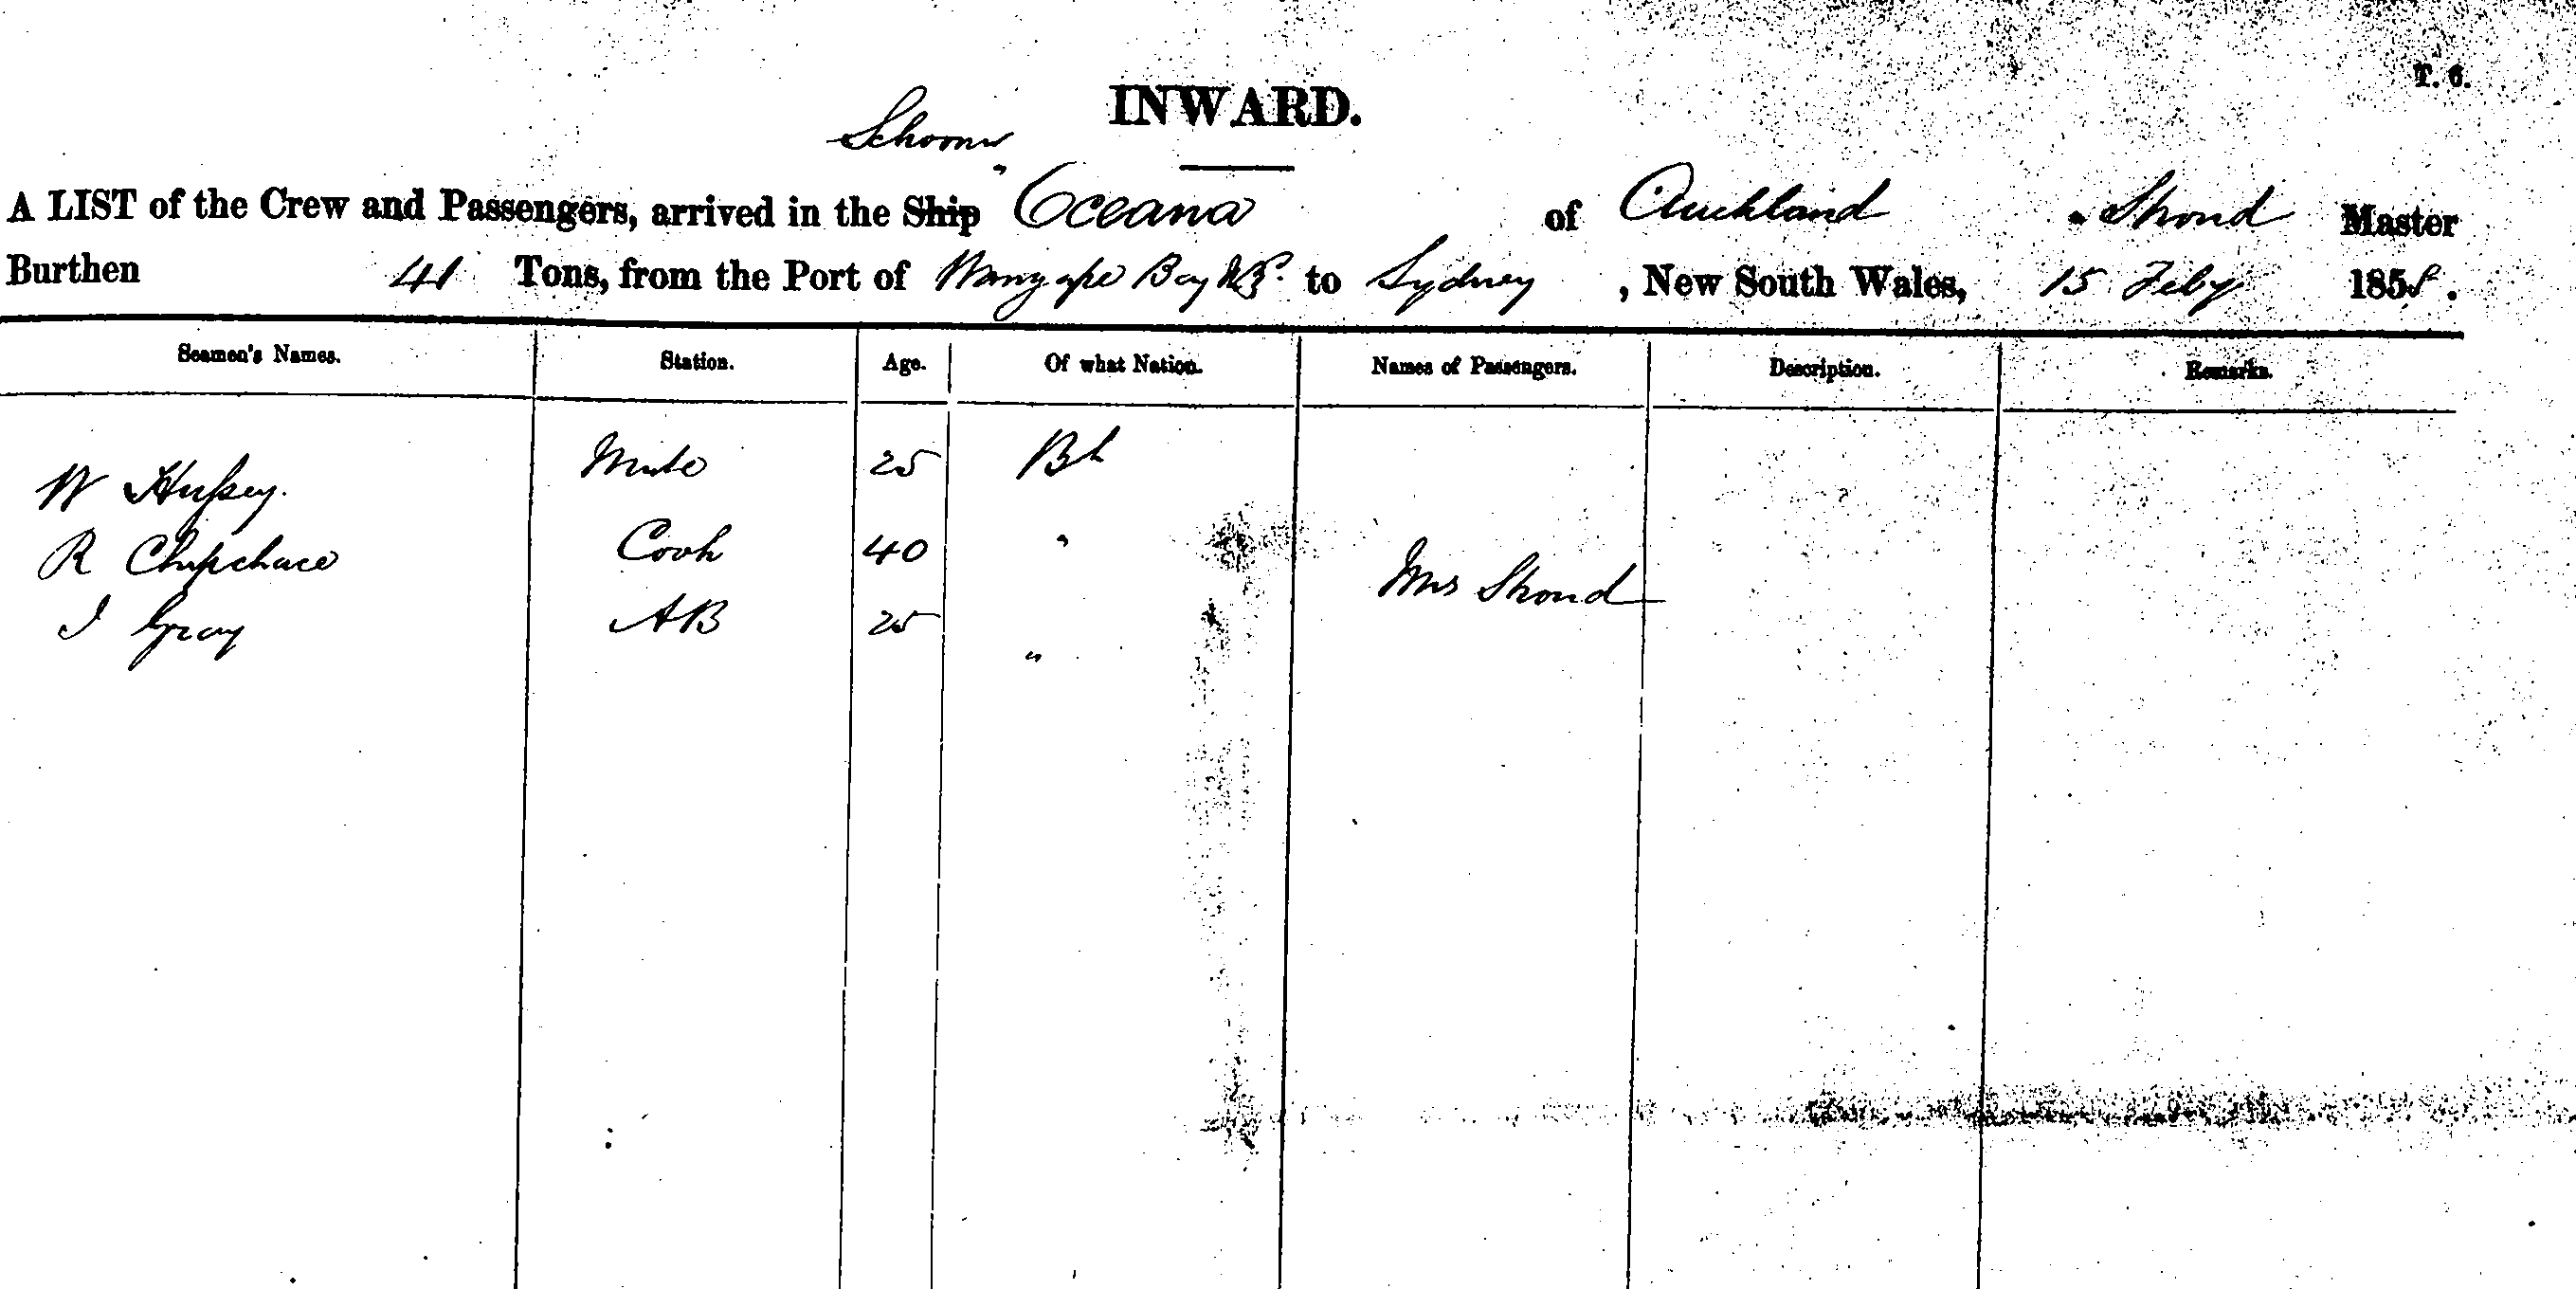 T. 6.
INWARD.
Schooner
A LIST of the Crew and Passengers, arrived in the Ship Oceana of Auckland Stroud Master
Burthen 41 Tons, from the Port of Bay NZ. to Sydney , New South Wales, 15 Feby 1858.
Seamen's Names. Station. Age. Of what Nation. Names of Passengers. Description. Remarks.
W Hussey. Mate 25 Bh
R Chipchace Cook 40 "
Mrs Stroud
J Gray AB 25 "